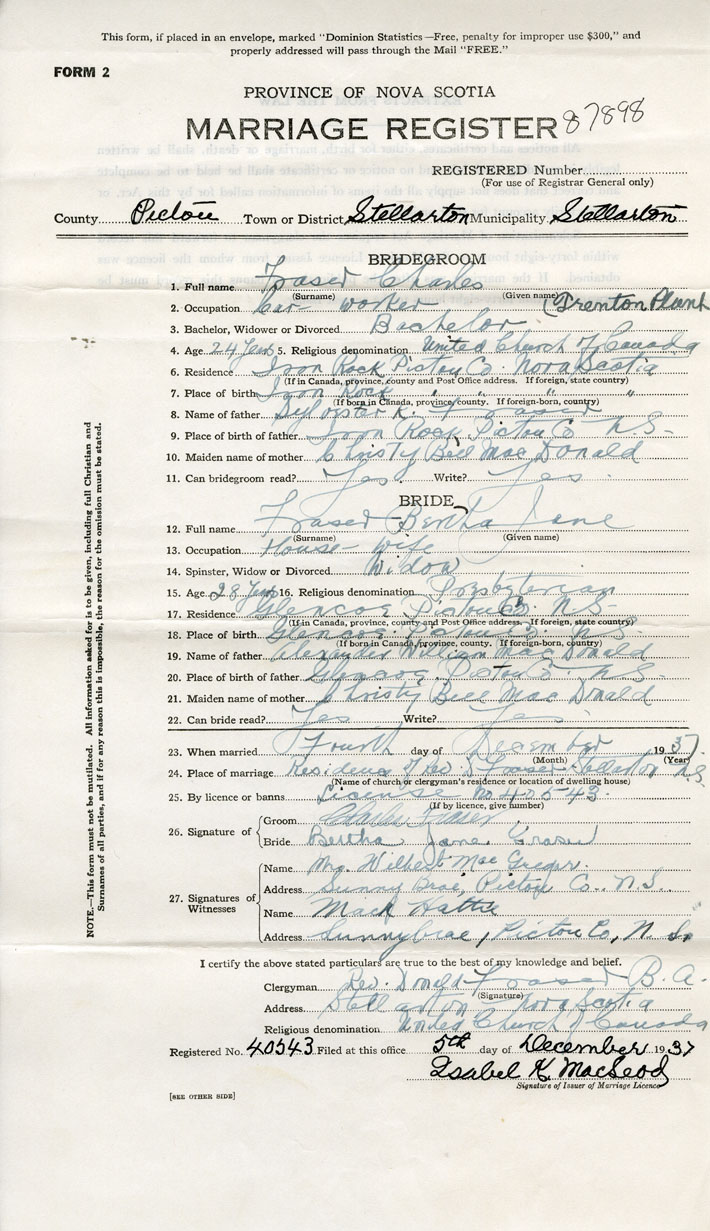 This form, if placed in an envelope, marked "Dominion Statistics—Free, penalty for improper use $300," and
properly addressed will pass through the Mail "FREE."
FORM 2
PROVINCE OF NOVA SCOTIA
MARRIAGE REGISTER 87898
REGISTERED Number
(For use of Registrar General only)
County Pictou Town or District Stellarton Municipality Stellarton
BRIDEGROOM
1. Full name Fraser Charles
(Surname) (Given name)
2. Occupation Car worker (Trenton Plant
3. Bachelor, Widower or Divorced Bachelor
4. Age 24 Years 5. Religious denomination United Church of Canada
6. Residence Iron Rock Pictou Co. Nova Scotia
(If in Canada, province, county and Post Office address. If foreign, state country)
7. Place of birth Iron Rock " " "
(If born in Canada, province/county. If foreign-born, country)
8. Name of father Sylvester K. Fraser
9. Place of birth of father Iron Rock Pictou Co N.S.
10. Maiden name of mother Christy Bell MacDonald
11. Can bridegroom read? Yes Write? Yes
BRIDE
12. Full name Fraser Bertha Jane
(Surname) (Given name)
13. Occupation House wife
14. Spinster, Widow or Divorced Widow
15. Age 28 Years 16. Religious denomination Presbyterian
17. Residence Glencoe Pictou Co. N.S.
(If in Canada, province, county and Post Office address. If foreign, state country)
18. Place of birth Glencoe Pictou Co. N.S.
(If born in Canada, province, county. If foreign-born, country)
19. Name of father Alexander William MacDonald
20. Place of birth of father Glencoe Pictou Co. N.S.
21. Maiden name of mother Christy Bell MacDonald
22. Can bride read? Yes Write? Yes
23. When married Fourth day of December 1937.
(Month) (Year)
24. Place of marriage Residence Rev. D. Fraser Stellarton N.S.
(Name of church or clergyman's residence or location of dwelling house)
25. By licence or banns License No. 40543.
(If by licence, give number)
26. Signature of Groom Charles Fraser
Bride Bertha Jane Fraser
27. Signatures of Witnesses
Name Mrs. Wilbert MacGregor.
Address Sunny Brae, Pictou Co., N.S.
Name Mack Hattie
Address Sunnybrae, Pictou Co, N.S.
I certify the above stated particulars are true to the best of my knowledge and belief.
Clergyman Rev. Donald Fraser B.A.
(Signature)
Address Stellarton Nova Scotia
Religious denomination United Church of Canada
Registered No. 40543 Filed at this office 5th day of December 1937
Isabel K. MacLeod
Signature of Issuer of Marriage Licence
[SEE OTHER SIDE]
NOTE.—This form must not be mutilated. All information asked for is to be given, including full Christian and
Surnames of all parties, and if for any reason this is impossible, the reason for the omission must be stated.